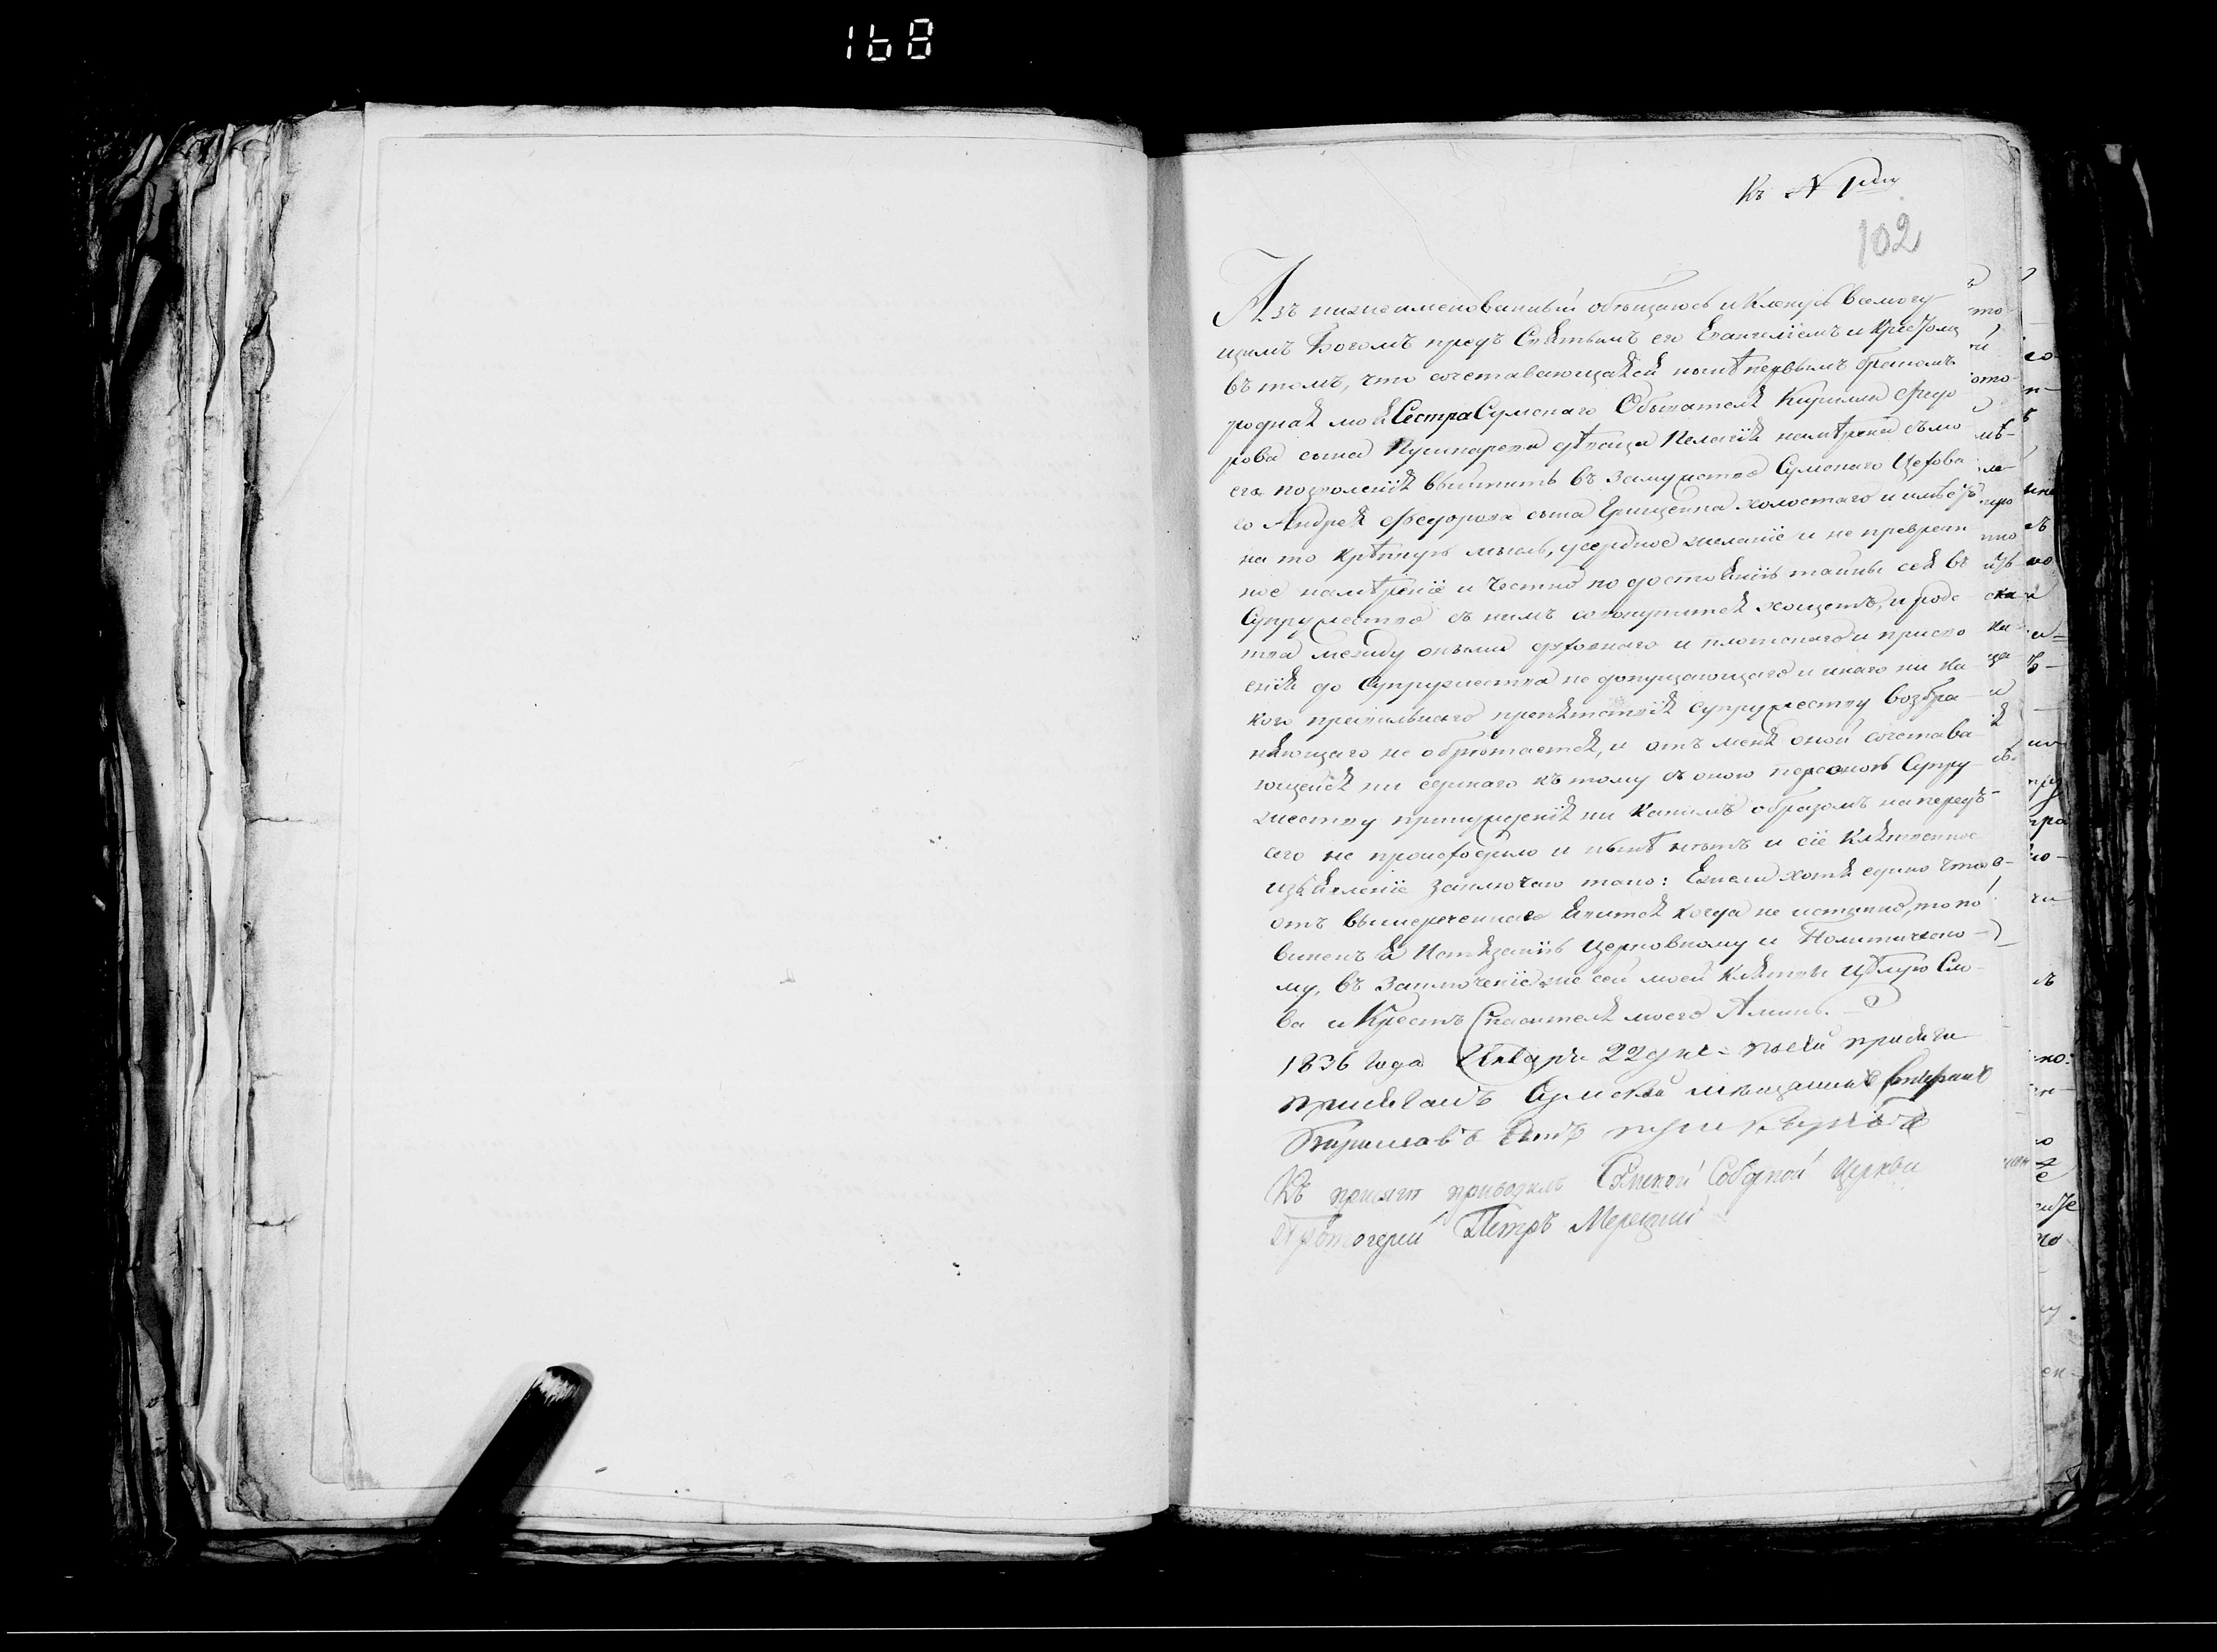 168
Къ № 1му
102
Азъ нижеименованный обѣщаюсь и Клянусь Всемогу
щимъ Богомъ предъ Святымъ его Евангеліемъ и Крестомъ
въ томъ, что сочетавающаяся нынѣ первымъ бракомъ
родная моя Сестра Сумскаго Обывателя Кирилла Федо
рова сына Пушкарева дѣвица Пелагія намѣрена съ мо
его позволенія выйтить въ Замужство Сумскаго Цехова
го Андрея Федорова сына Грищенка холостаго и имѣетъ
на то крѣпкую мысль, усердное желаніе и не преврат
ное намѣреніе и Честно по достоянію тайны сея въ
Супружество съ нимъ совокупится хощетъ, и родс
тва между оными духовнаго и плотскаго и присво
енія до Супружества не допущающаго и инаго ни ка
кого правильнаго препятствія супружеству возбра
няющаго не обрѣтается, и отъ меня оной сочетава
ющейся ни единаго къ тому съ оною персоною Супру
жеству принужденія ни Какимъ образомъ напредъ
сего не происходило и нынѣ нѣтъ и сіе Клятвенное
изъявленіе Заключаю тако: Ежели хотя едино что
отъ вышереченнаго явится когда не истинно, то по
виненъ я Истязанію Церковному и Политическо
му, въ Заключеніе же сей моей Клятвы цѣлую Сло
ва и Крестъ Спасителя моего Аминь.
1836 Года Января 22 дня к сей присяги
присягалъ Сумской мѣщанинъ
Кириловъ сынъ Пушкаревъ
Къ присягѣ приводилъ Сумской Соборной Церкви
Протоіерей Петръ